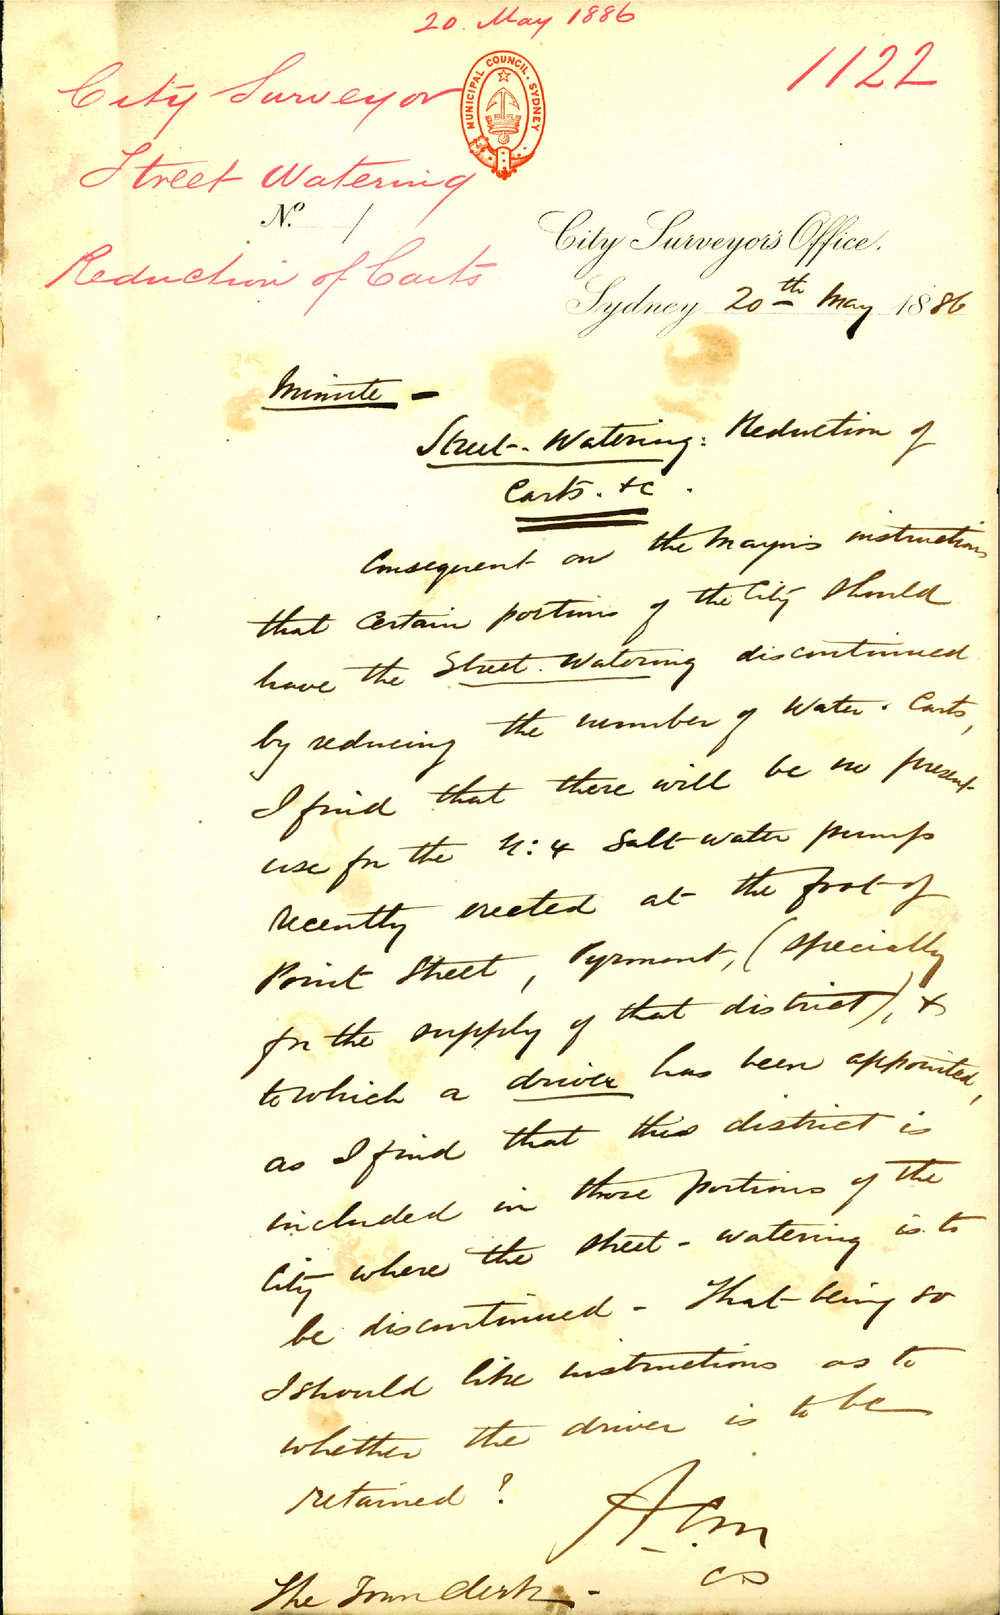 20. May 1886
1122
City Surveyor
MUNICIPAL COUNCIL. SYDNEY
Street Watering
No. /
Reduction of Carts
City Surveyor's Office.
Sydney 20th May 1886
Minute -
Street-. Watering: Reduction of
Carts. &c.
Consequent on the Mayor's instructions
that certain portions of the City should
have the Street. Watering discontinued
by reducing the number of Water. Carts,
I find that there will be no present
use for the N: 4 Salt water pump
recently erected at the foot of
Point Street, Pyrmont, (specially
for the supply of that district), &
to which a driver has been appointed,
as I find that this district is
included in those portions of the
City where the street - watering is to
be discontinued - That being so
I should like instructions as to
whether the driver is to be
retained?
A.C.M
CS
The Town Clerk -